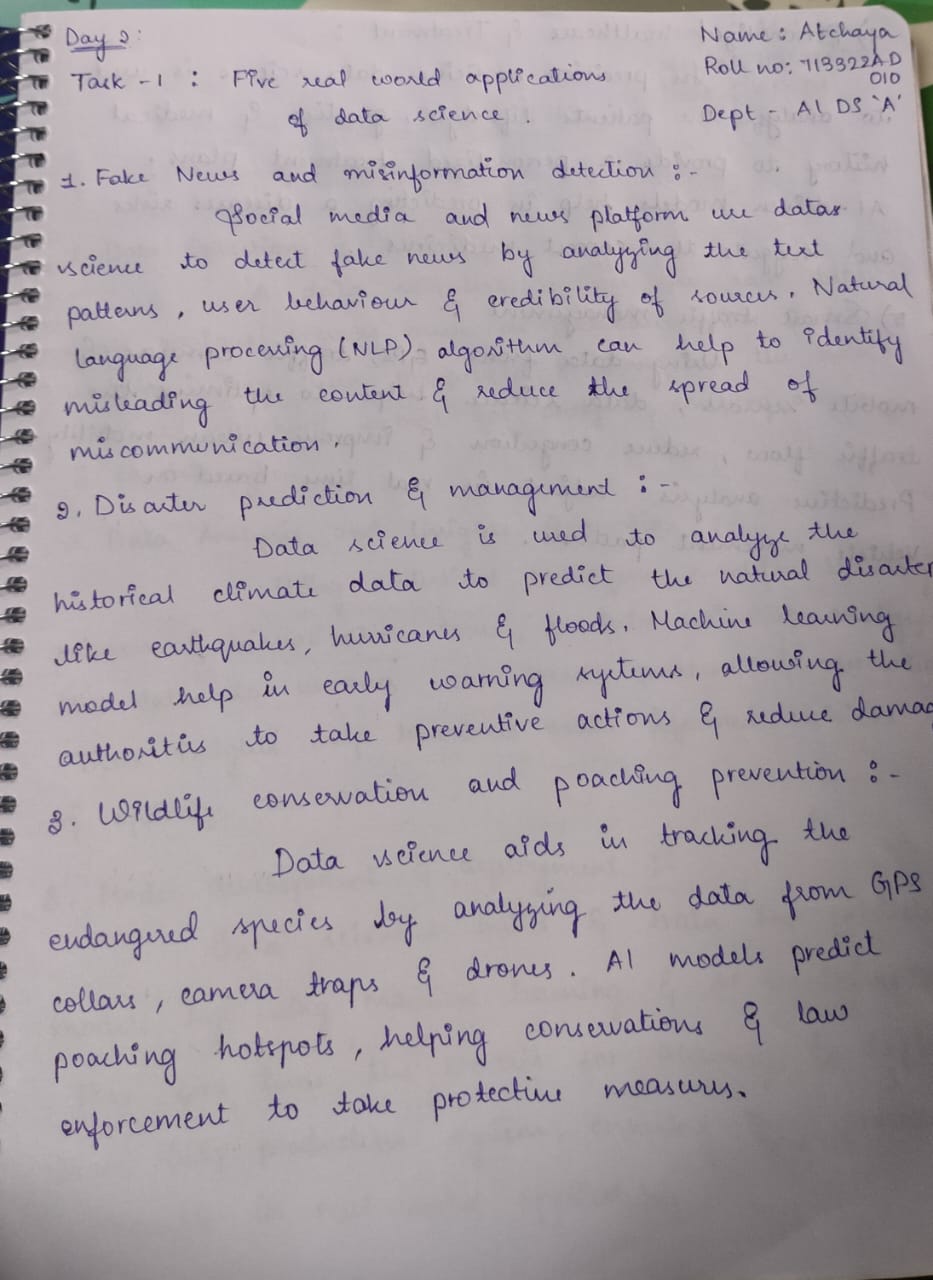 Day 2:
Name : Atchaya
Roll no: 713322AD
010
Task - 1 : Five real world applications
of data science.
Dept - AI DS 'A'
1. Fake News and misinformation detection :-
Social media and news platform use datas
science to detect fake news by analyzing the text
patterns, user behaviour & credibility of sources. Natural
language processing (NLP) algorithm can help to identify
misleading the content & reduce the spread of
miscommunication.
2. Disaster prediction & management :-
Data science is used to analyze the
historical climate data to predict the natural disaster
like earthquakes, hurricanes & floods. Machine learning
model help in early warning systems, allowing the
authorities to take preventive actions & reduce damag
3. Wildlife conservation and poaching prevention :-
Data science aids in tracking the
endangered species by analyzing the data from GPS
collars, camera traps & drones. AI models predict
poaching hotspots, helping conservations & law
enforcement to take protective measures.